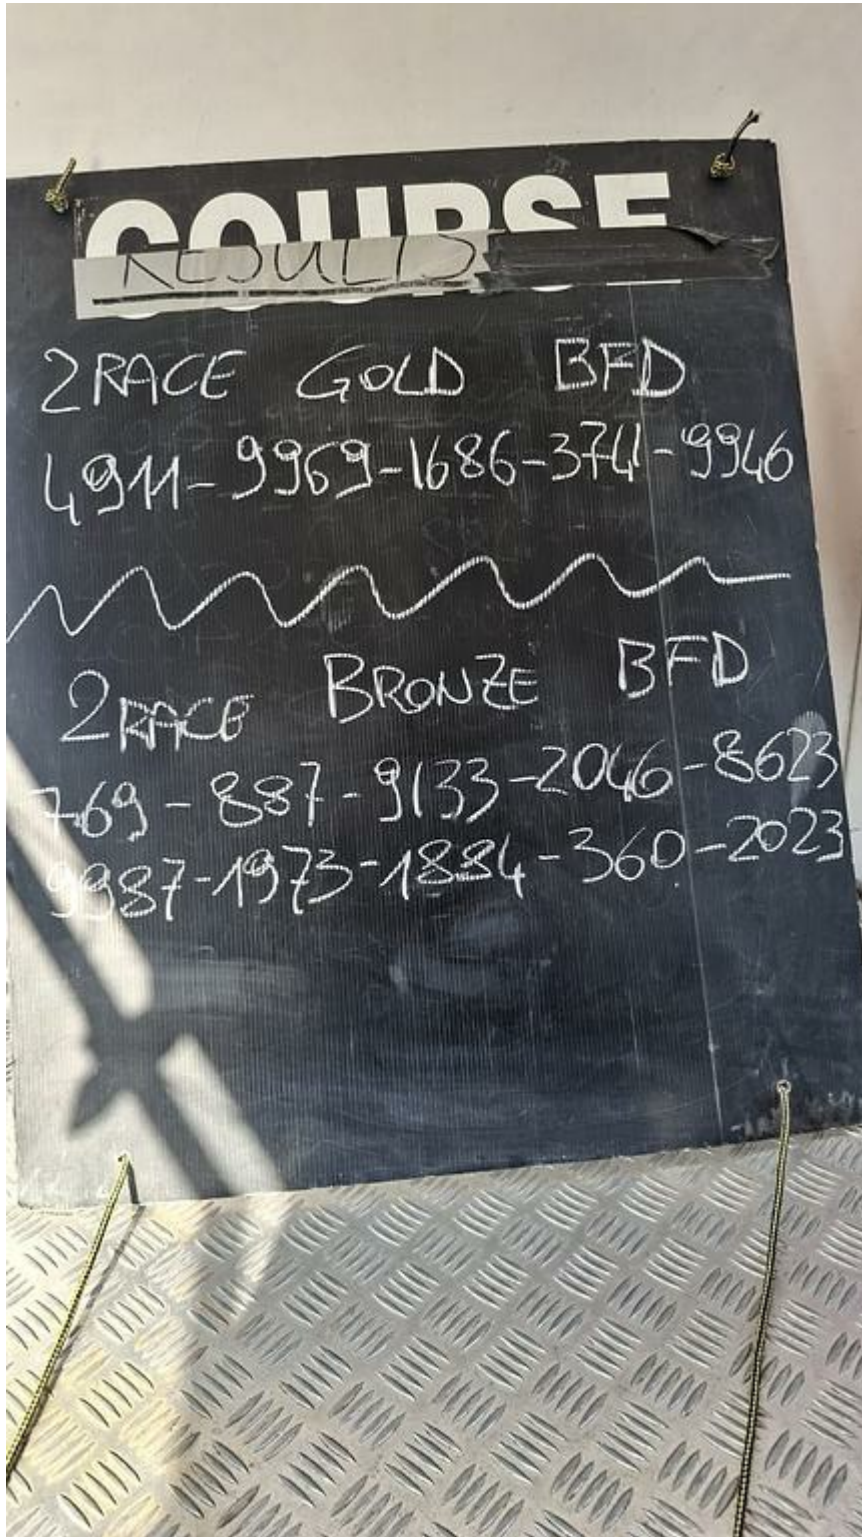 COURSE
RESULTS
2RACE GOLD BFD
4911-9969-1686-3741-9946
2RACE BRONZE BFD
769-887-9133-2046-8623
9987-1973-1884-360-2023